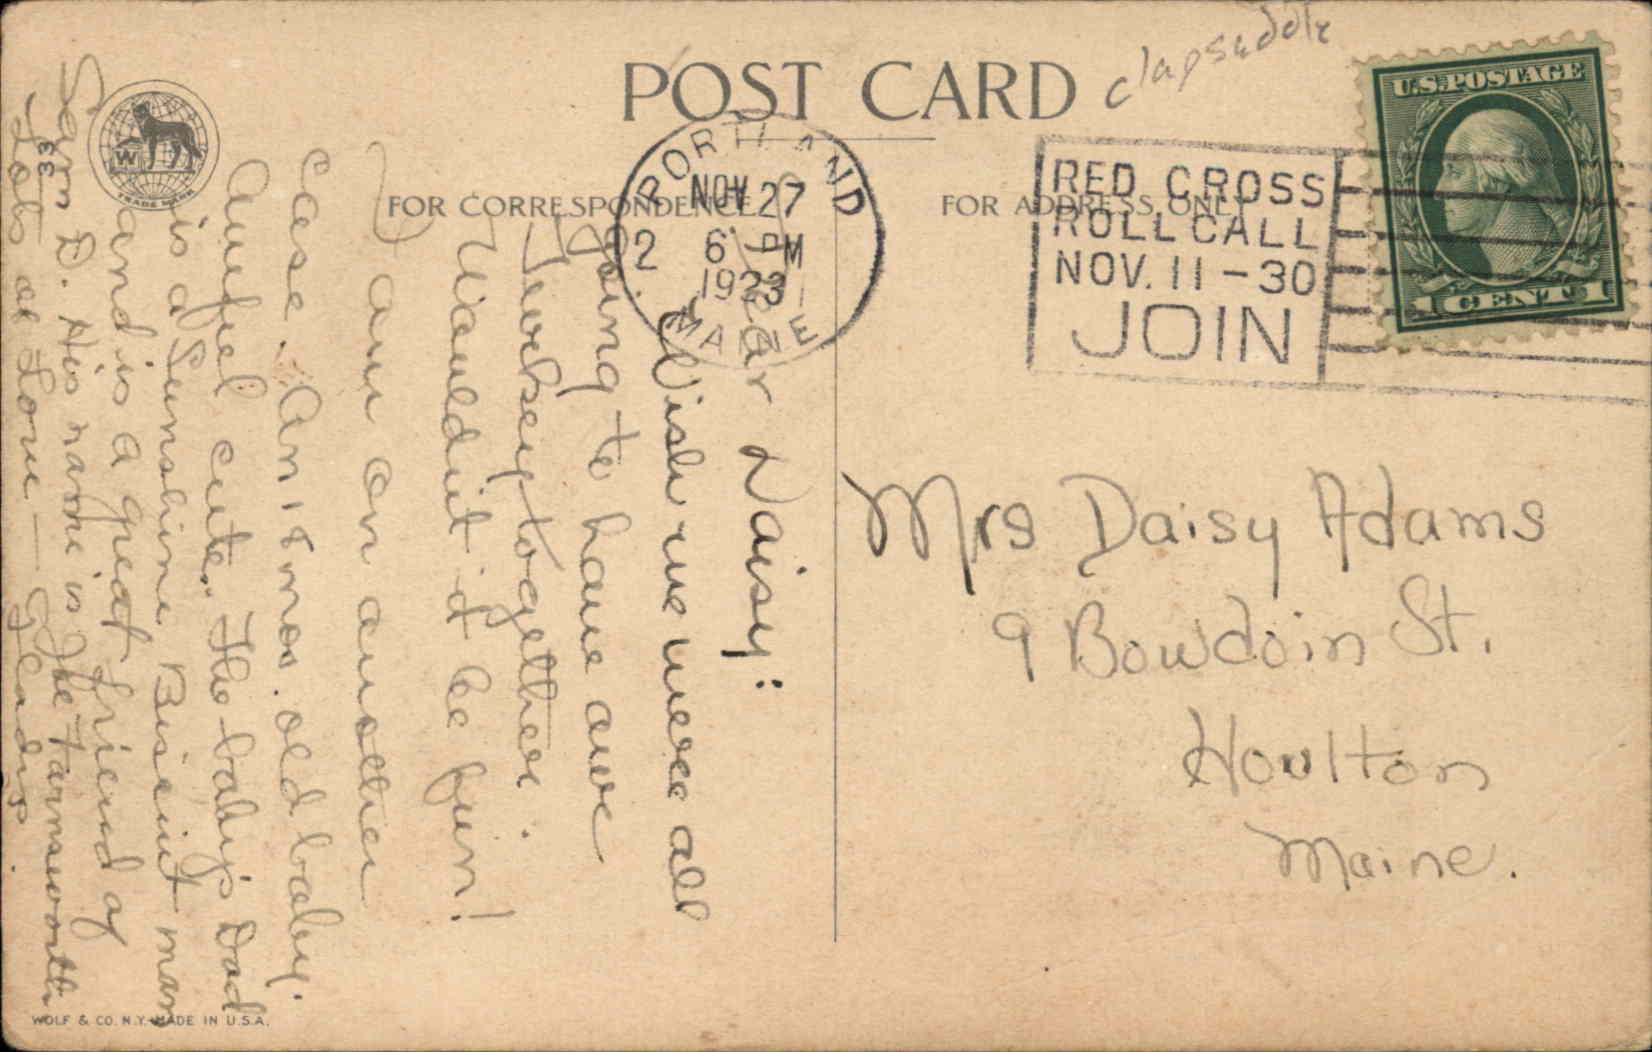 POST CARD
clapsaddle
FOR CORRESPONDENCE
FOR ADDRESS ONLY
PORTLAND
NOV 27
2 6 PM
1923
MAINE
RED CROSS
ROLL CALL
NOV. 11 - 30
JOIN
U.S. POSTAGE
1 CENTS 1
Mrs Daisy Adams
9 Bowdoin St.
Houlton
Maine.
Dear Daisy:
Wish we were all
going to have our
Turkey together.
Wouldn't it be fun!
I am on another
case. An 18 mos. old baby.
Awful cute. The baby's Dad
is a Sunshine Biscuit man
and is a great friend of
Sam D. His name is Joe Farnsworth
Lots of Love — Gladys.
W
TRADE MARK
33
WOLF & CO. N.Y. MADE IN U.S.A.